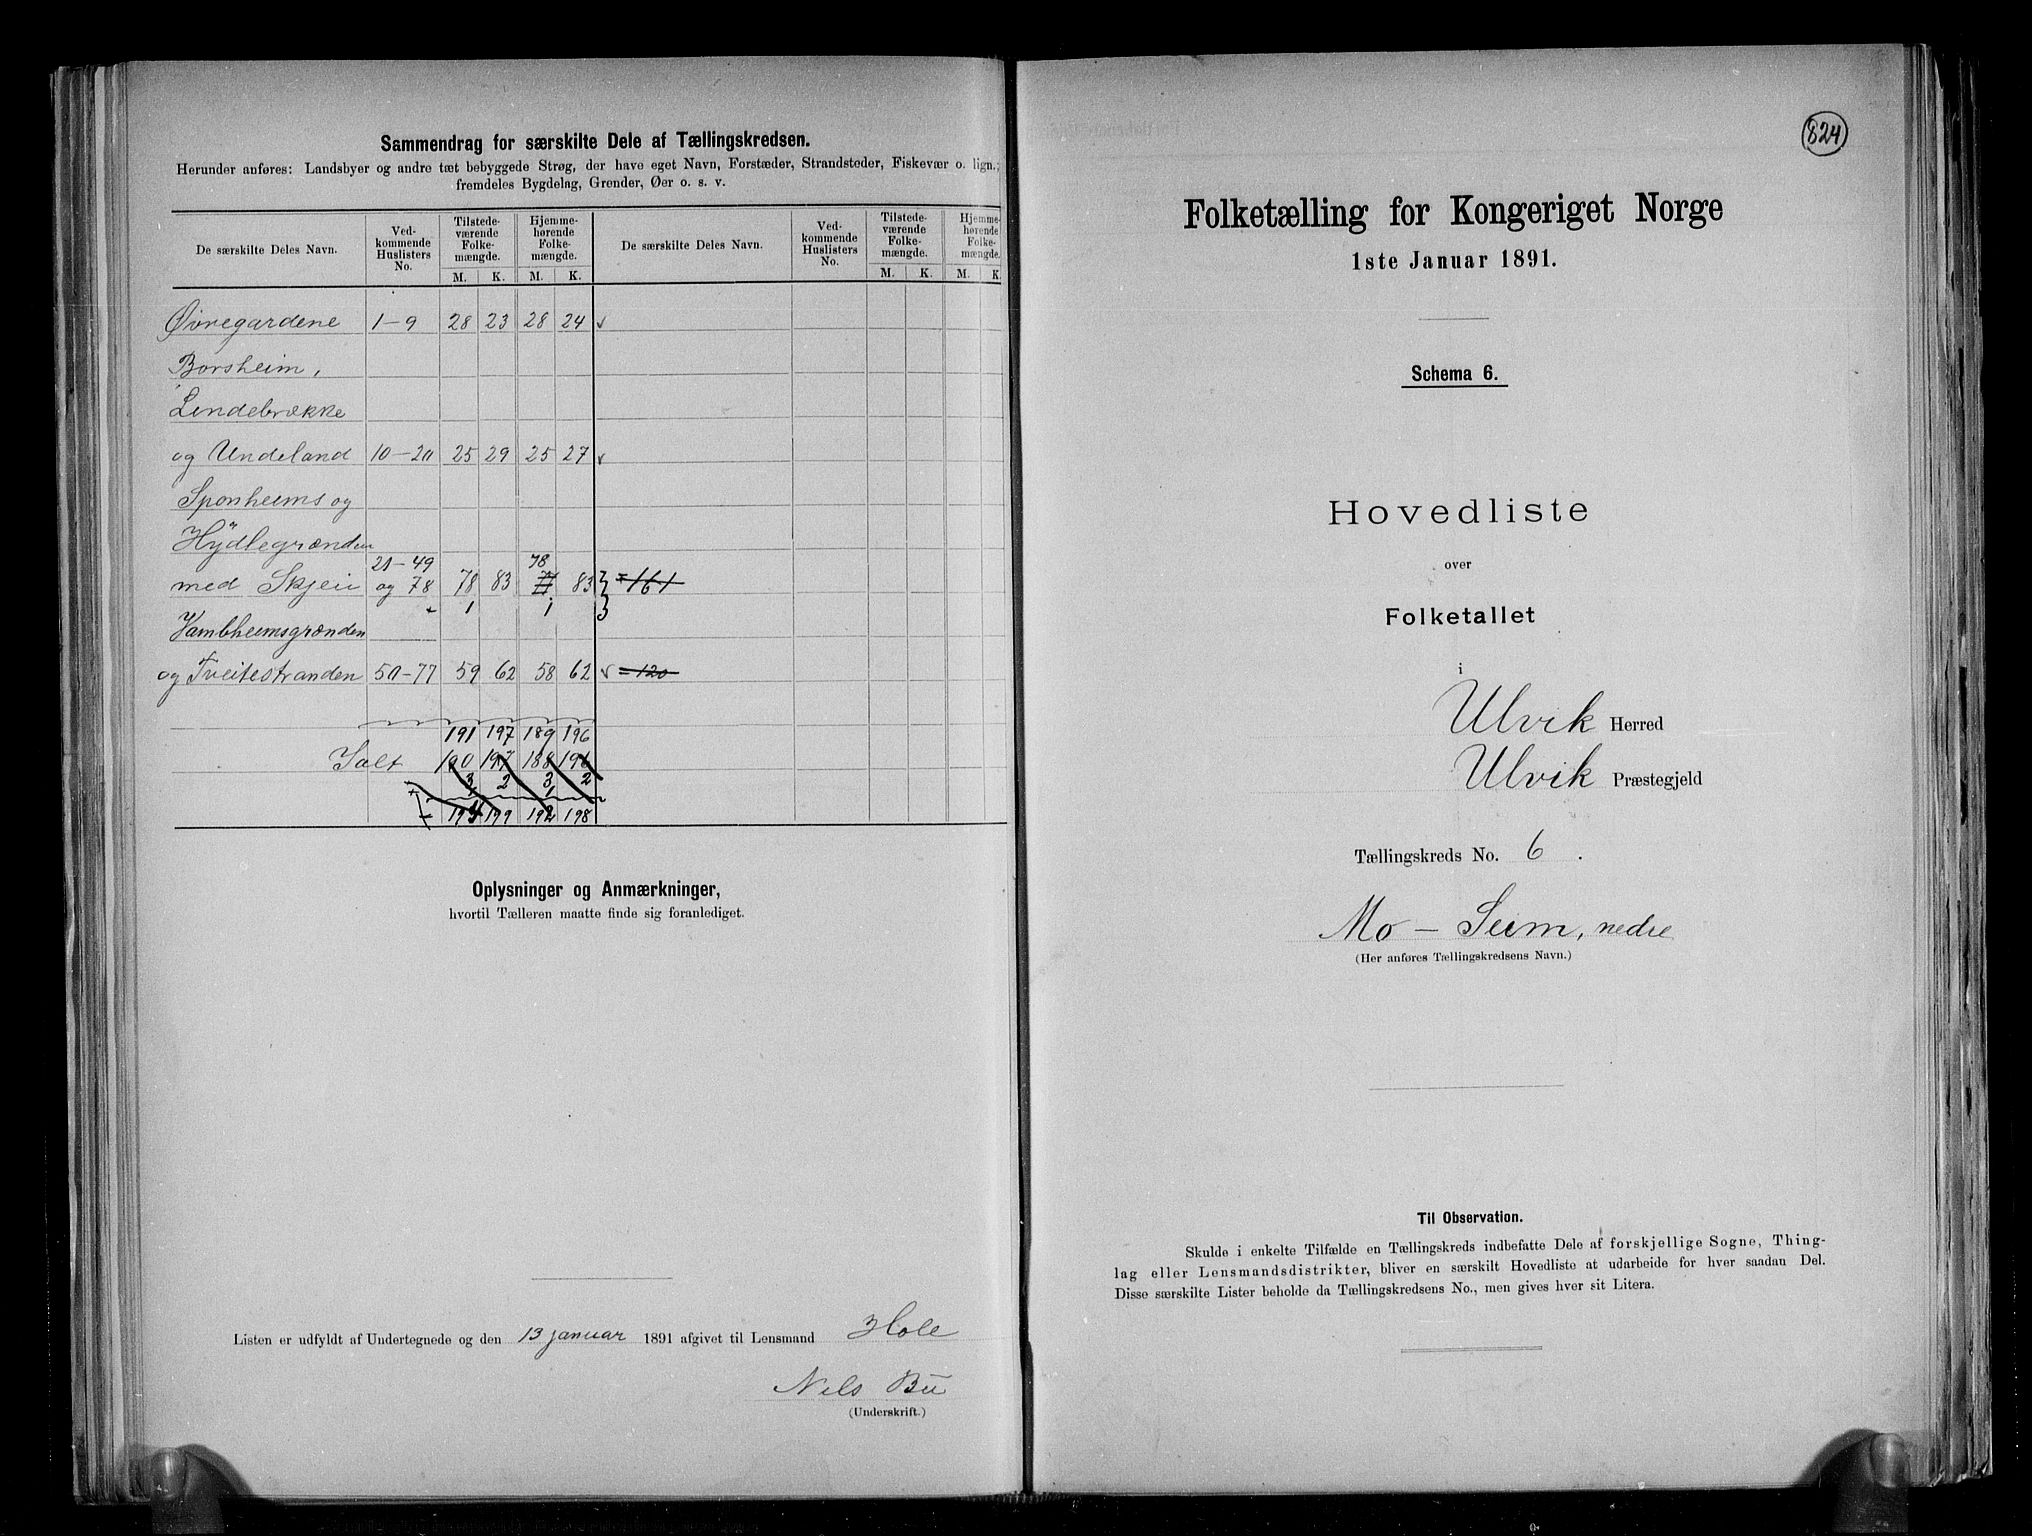 Sammendrag for særskilte Dele af Tællingskredsen.
Herunder anføres: Landsbyer og andre tæt bebyggede Strøg, der have eget Navn, Forstæder, Strandsteder, Fiskevær o. lign.;
fremdeles Bygdelag, Grender, Øer o. s. v.
De særskilte Deles Navn. Ved-kommende Huslisters No. Tilstede-værende Folke-mængde. Hjemme-hørende Folke-mængde. De særskilte Deles Navn. Ved-kommende Huslisters No. Tilstede-værende Folke-mængde. Hjemme-hørende Folke-mængde.
M. K. M. K. M. K. M. K.
Øvregardene 1-9 28 23 28 24
Borsheim,
Lendebrække
og Undeland 10-20 25 29 25 27
Sponheims og
Hydlegrænden
21-49 78
med Skjeii og 78 78 83 77 83 = 161
1 1
Vambheimsgrænden
og Tveitestranden 50-77 59 62 58 62 = 120
191 197 189 196
Ialt 190 197 188 196
3 2 3 2
1 1
194 199 192 198
Oplysninger og Anmærkninger,
hvortil Tælleren maatte finde sig foranlediget.
Listen er udfyldt af Undertegnede og den 13 januar 1891 afgivet til Lensmand Hole
Nils Bu
(Underskrift.)
824
Folketælling for Kongeriget Norge
1ste Januar 1891.
Schema 6.
Hovedliste
over
Folketallet
i
Ulvik Herred
Ulvik Præstegjeld
Tællingskreds No. 6.
Mo - Seim, nedre
(Her anføres Tællingskredsens Navn.)
Til Observation.
Skulde i enkelte Tilfælde en Tællingskreds indbefatte Dele af forskjellige Sogne, Thing-
lag eller Lensmandsdistrikter, bliver en særskilt Hovedliste at udarbeide for hver saadan Del.
Disse særskilte Lister beholde da Tællingskredsens No., men gives hver sit Litera.